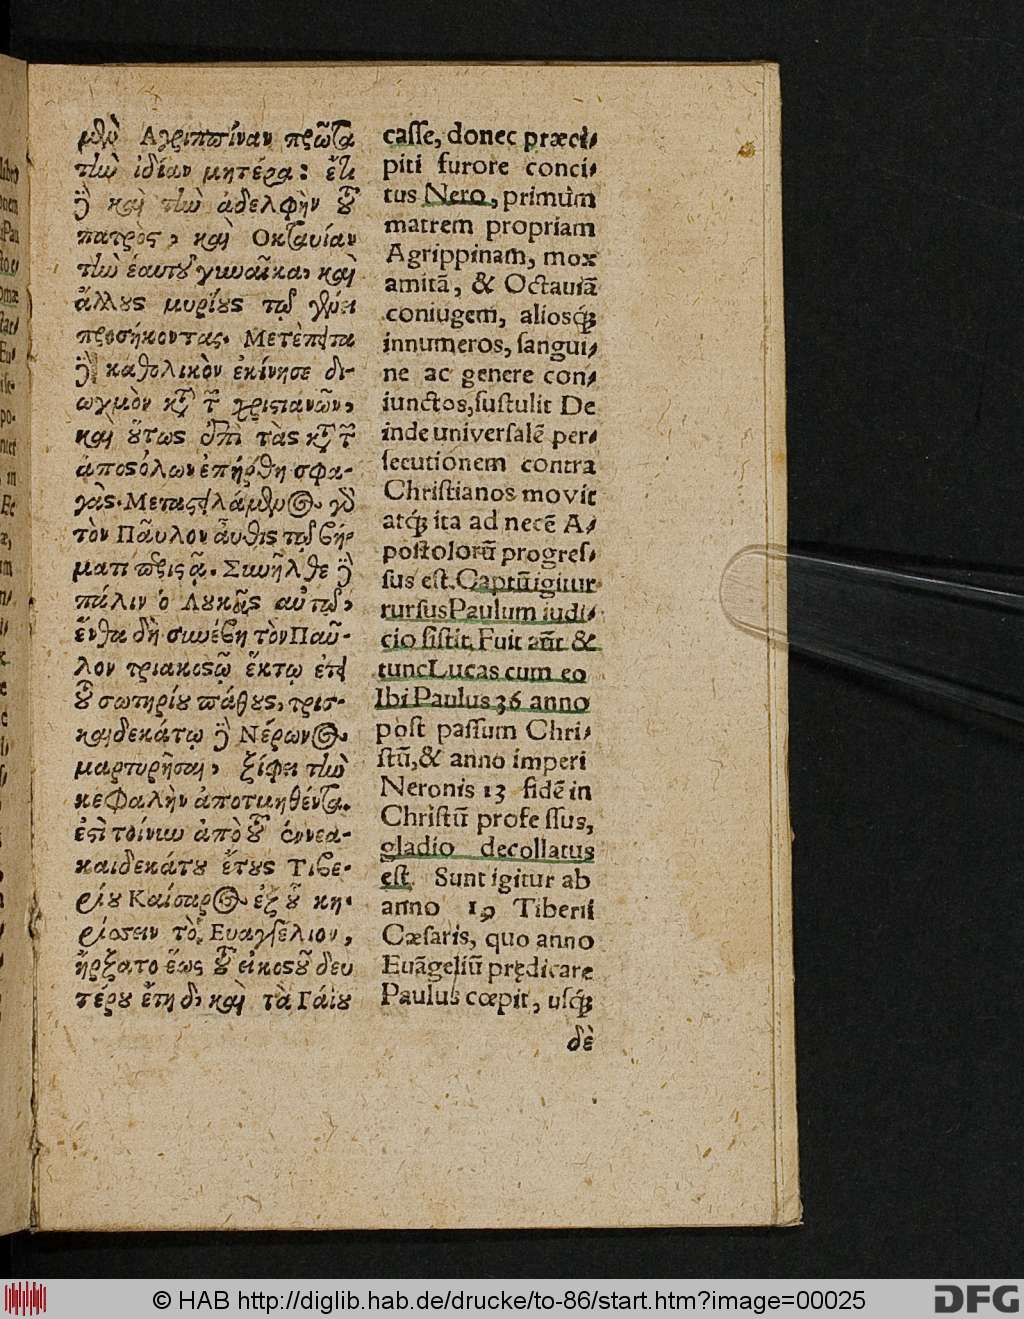 μὲν Ἀγριππίναν πρῶτα
τὴν ἰδίαν μητέρα: ἔτι
δὲ καὶ τὴν ἀδελφὴν τοῦ
πατρὸς, καὶ Ὀκταυίαν
τὴν ἑαυτοῦ γυναῖκα, καὶ
ἄλλους μυρίους τῷ γένει
προσήκοντας. Μετέπειτα
δὲ καθολικὸν ἐκίνησε δι-
ωγμὸν κατὰ τῶν χριστιανῶν,
καὶ οὕτως ἐπὶ τὰς κατὰ τῶν
ἀποστόλων ἐπήρθη σφα-
γάς. Μεταστειλάμενος γὰρ
τὸν Παῦλον αὖθις τῷ βή-
ματι παρίστα. Συνῆλθε δὲ
πάλιν ὁ Λουκᾶς αὐτῷ,
ἔνθα δὴ συνέβη τὸν Παῦ-
λον τριακοστῷ ἕκτῳ ἔτει
τοῦ σωτηρίου πάθους, τρισ-
καιδεκάτῳ δὲ Νέρωνος
μαρτυρῆσαι, ξίφει τὴν
κεφαλὴν ἀποτμηθέντα.
ἔστι τοίνυν ἀπὸ τοῦ ἐννεα-
καιδεκάτου ἔτους Τιβε-
ρίου Καίσαρος ἐξ οὗ κη-
ρύσσειν τὸ Εὐαγγέλιον,
ἤρξατο ἕως τοῦ εἰκοστοῦ δευ
τέρου ἔτη δ. καὶ τὰ Γαΐου
casse, donec præci-
piti furore conci-
tus Nero, primùm
matrem propriam
Agrippinam, mox
amitã, & Octauiã
coniugem, aliosq́
innumeros, sangui-
ne ac genere con-
iunctos, sustulit De
inde universalẽ per-
secutionem contra
Christianos movit
atq́ ita ad necẽ A-
postolorũ progres-
sus est. Captũ igitur
rursus Paulum iudi-
cio sistit, Fuit aũt &
tunc Lucas cum eo
Ibi Paulus 36 anno
post passum Chri-
stũ, & anno imperi
Neronis 13 fidẽ in
Christũ professus,
gladio decollatus
est. Sunt igitur ab
anno 19 Tiberii
Cæsaris, quo anno
Euãgeliũ prędicare
Paulus cœpit, usq́
δὲ
© HAB http://diglib.hab.de/drucke/to-86/start.htm?image=00025
DFG